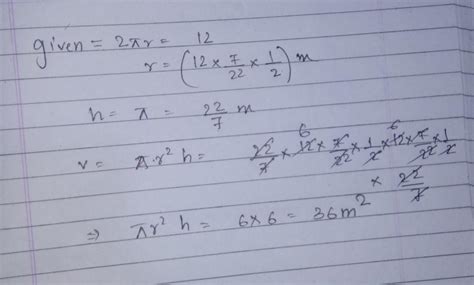 given = 2πr = 12
r = (12 × 7/22 × 1/2) m
h = π = 22/7 m
v = π r² h = 22/7 × 12 6 × 7/22 × 1/2 × 12 6 × 7/22 × 1/2 × 22/7
⇒ πr² h = 6×6 = 36m²